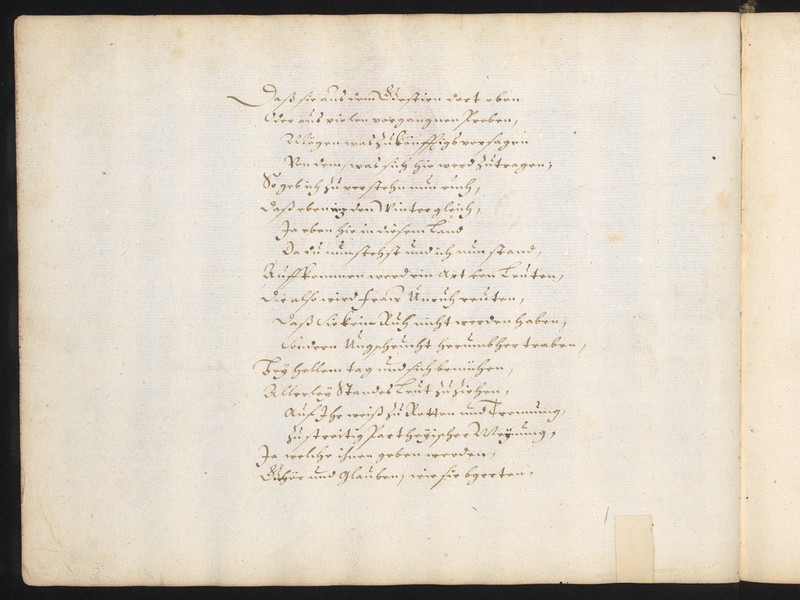 Daß sie aus dem Gestirn dort oben
Oder aus vielen vorgangnen Proben,
Mögen was Zukönfftigs vorsagen
Von dem, was sich hie werd zutragen;
So geb ich zu verstehn nun euch,
Daß eben den Winter gleich,
Ja eben hie in diesem Land
Da du nun stehst und ich nun stand,
Auffkommen werd ein Art von Leuten,
Die also wird fraw Unruh reuten,
Daß Sie kein Ruh nicht werden haben,
Sondern Ungscheucht herumbher traben,
Bey hellem tag und sich bemühen,
Allerley Standes Leut zu ziehen,
Auf Ihr weiß zu Rotten und Trennung,
Zu streitig Partheyischer Meynung,
Ja welche ihnen geben werden,
Ghör und Glauben, wie sie bgerten,